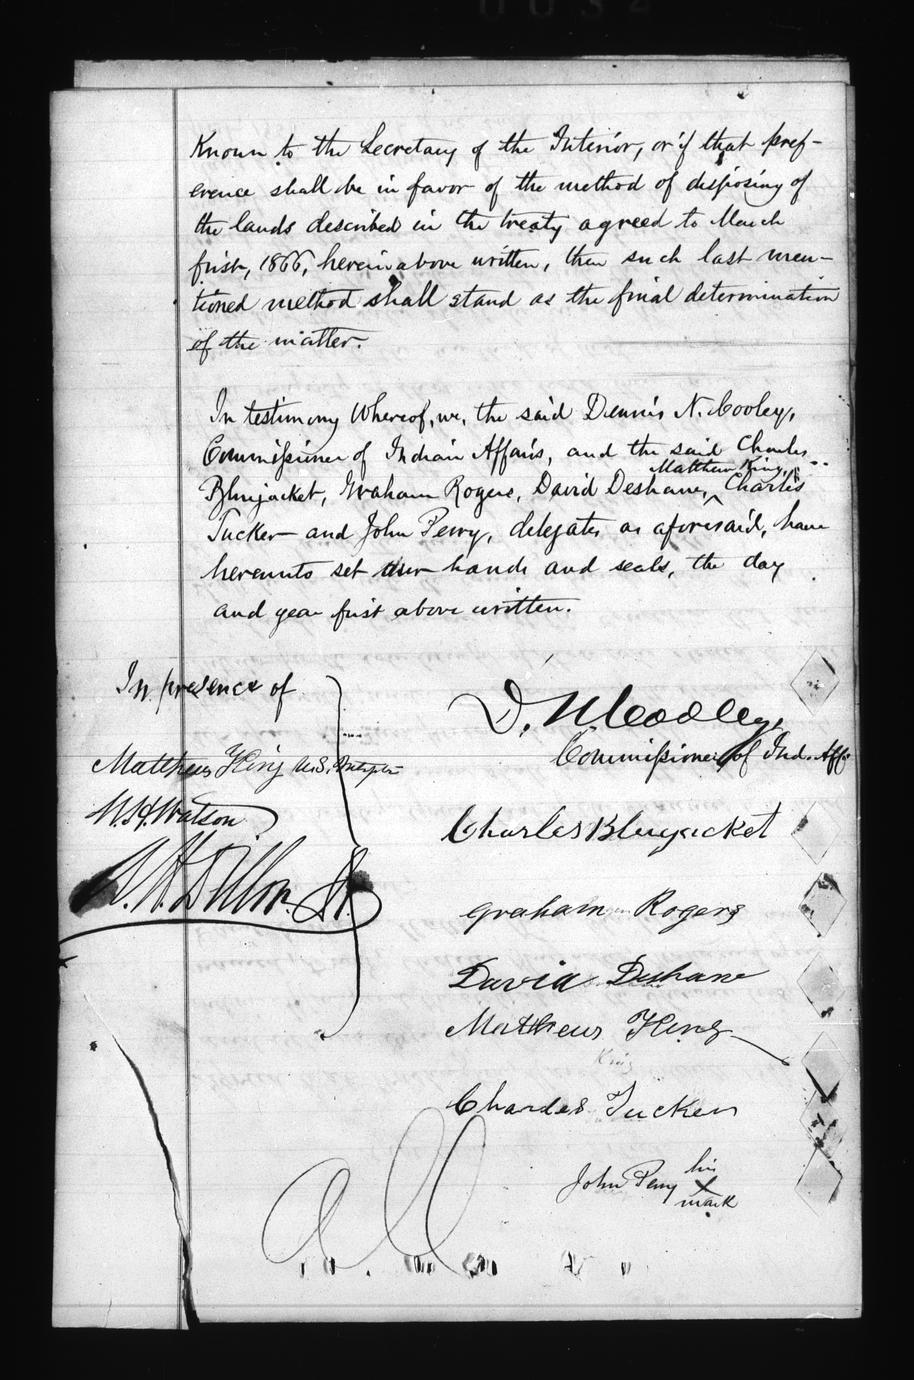 0034
Known to the Secretary of the Interior, or if that pref-
erence shall be in favor of the method of disposing of
the lands described in the treaty agreed to March
first, 1866, hereinabove written, then such last men-
tioned method shall stand as the final determination
of the matter.
In testimony Whereof, we, the said Dennis N. Cooley,
Commissioner of Indian Affairs, and the said Charles
Matthew King,
Bluejacket, Graham Rogers, David Deshane, ^ Charles
Tucker and John Perry, delegates as aforesaid, have
hereunto set their hands and seals, the day
and year first above written.
In presence of
D. N. Cooley,
Commissioner of Ind. Affs.
Matthew King U.S. Interpter
W. H. Watson
Charles Bluejacket
Graham Rogers
David Deshane
Mathew King
King
Charles Tucker
his
John Perry X
mark
all